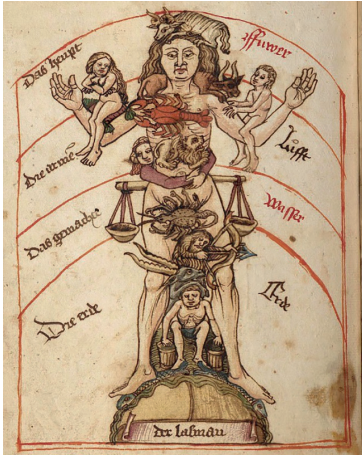 Das heupt
ffurwer
Die arme
Lufft
Das gemächt
Wasser
Die erde
Erde
der lasman